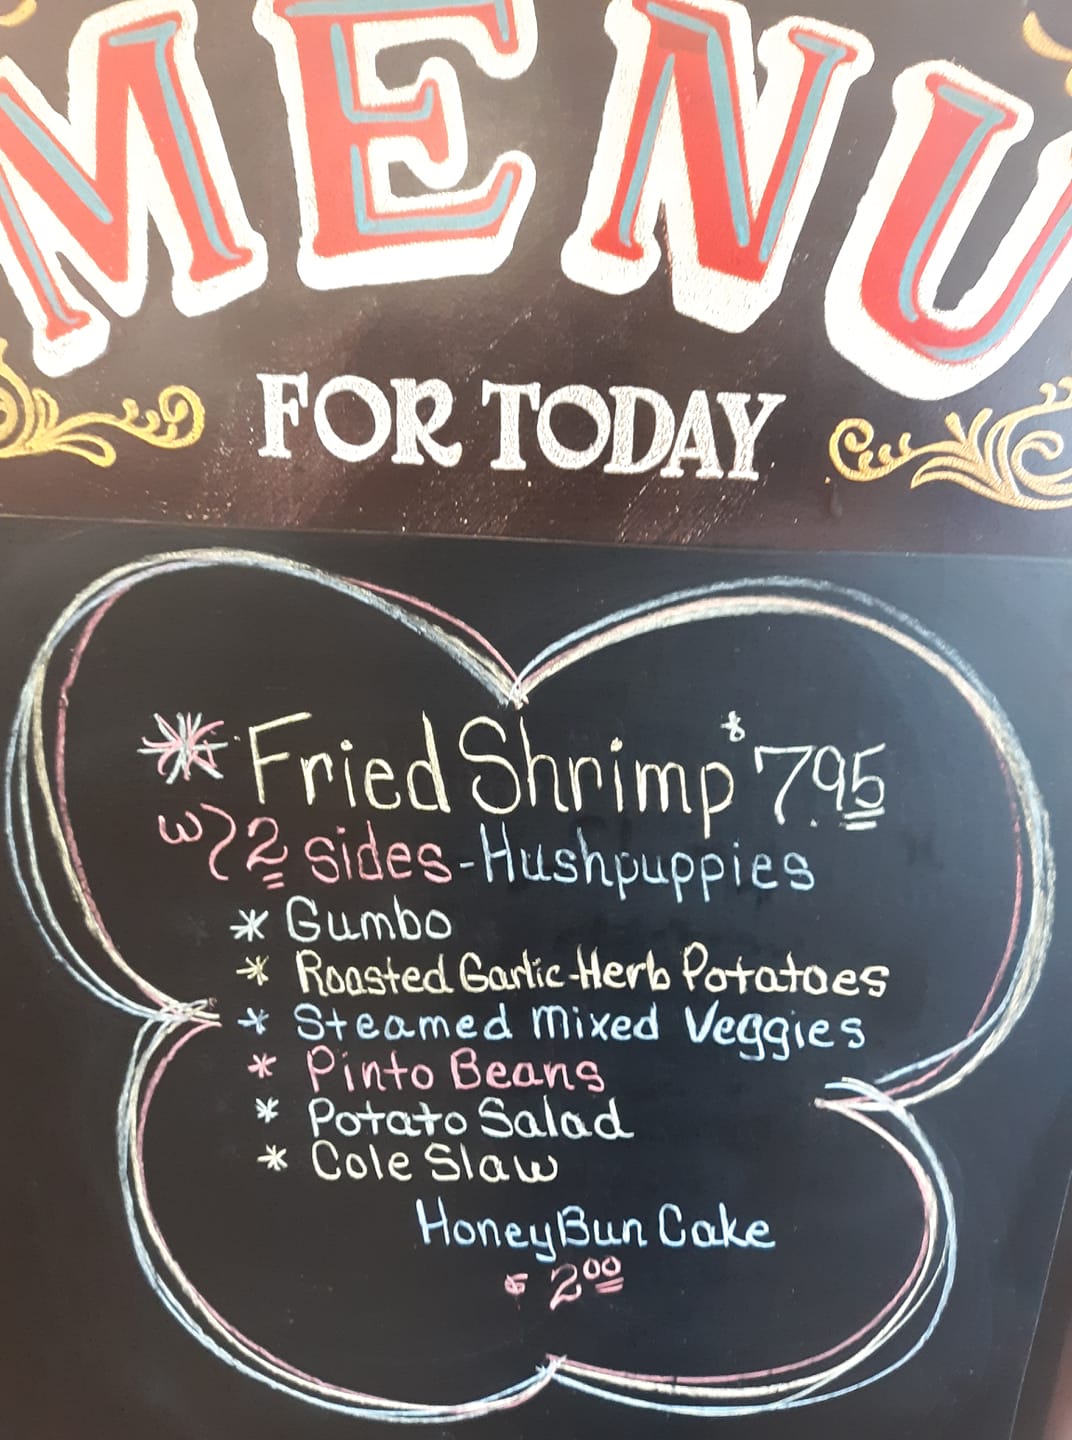 MENU
FOR TODAY
* Fried Shrimp $7.95
w/2 sides-Hushpuppies
* Gumbo
* Roasted Garlic-Herb Potatoes
* Steamed Mixed Veggies
* Pinto Beans
* Potato Salad
* Cole Slaw
HoneyBun Cake
$2.00